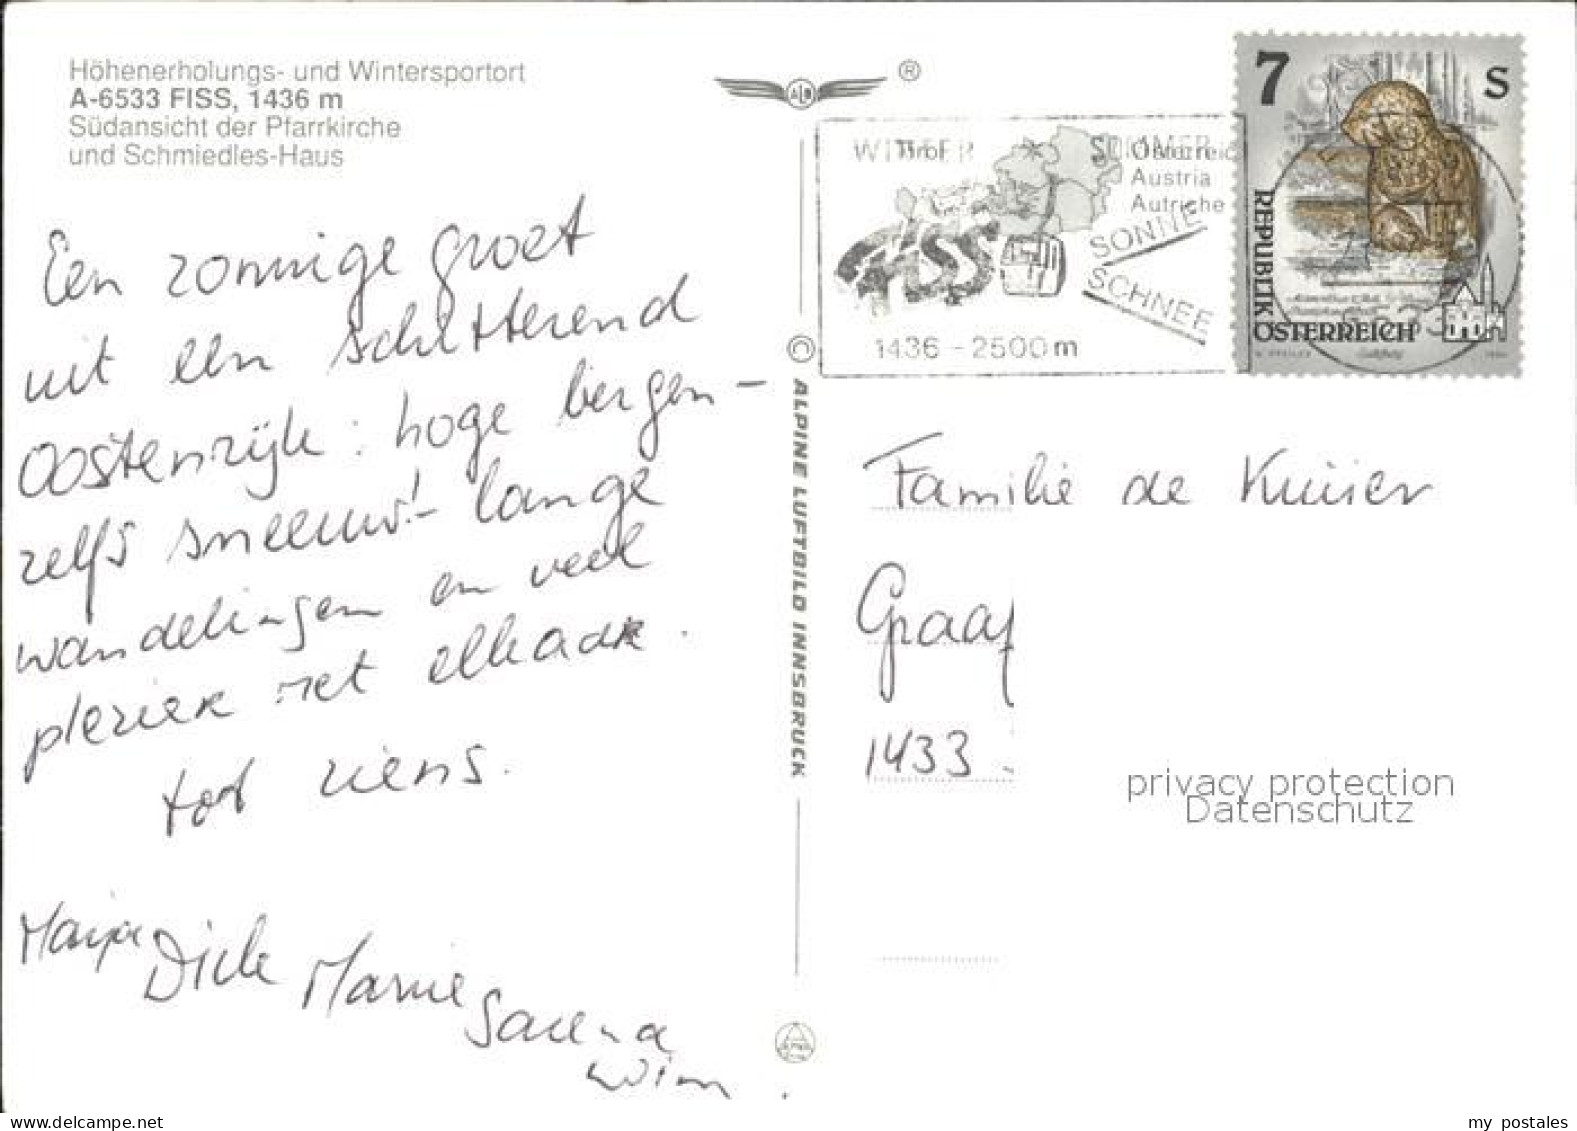 Höhenerholungs- und Wintersportort
A-6533 FISS, 1436 m
Südansicht der Pfarrkirche
und Schmiedles-Haus
Een zonnige groet
uit een schitterend
Oostenrijk: hoge bergen -
zelfs sneeuw! - lange
wandelingen en veel
plezier met elkaar.
tot ziens.
Marja
Dick Marrie
Saena
Wim
ALPINE LUFTBILD INNSBRUCK
®
WINTER SOMMER
Tirol Österreich
Austria
Autriche
FISS
SONNE
SCHNEE
1436 - 2500 m
7 S
REPUBLIK
ÖSTERREICH
Familie de Kuijer
Graaf
1433
privacy protection
Datenschutz
www.delcampe.net
my postales